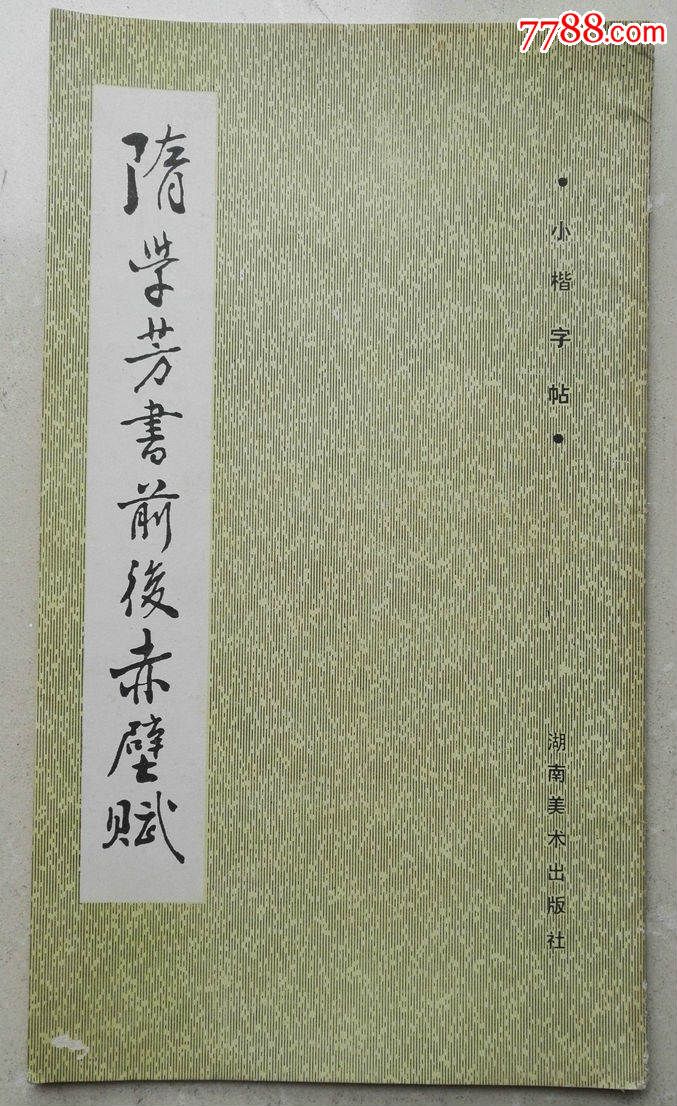 7788.com
•小楷字帖•
湖南美术出版社
隋学芳書前後赤壁賦